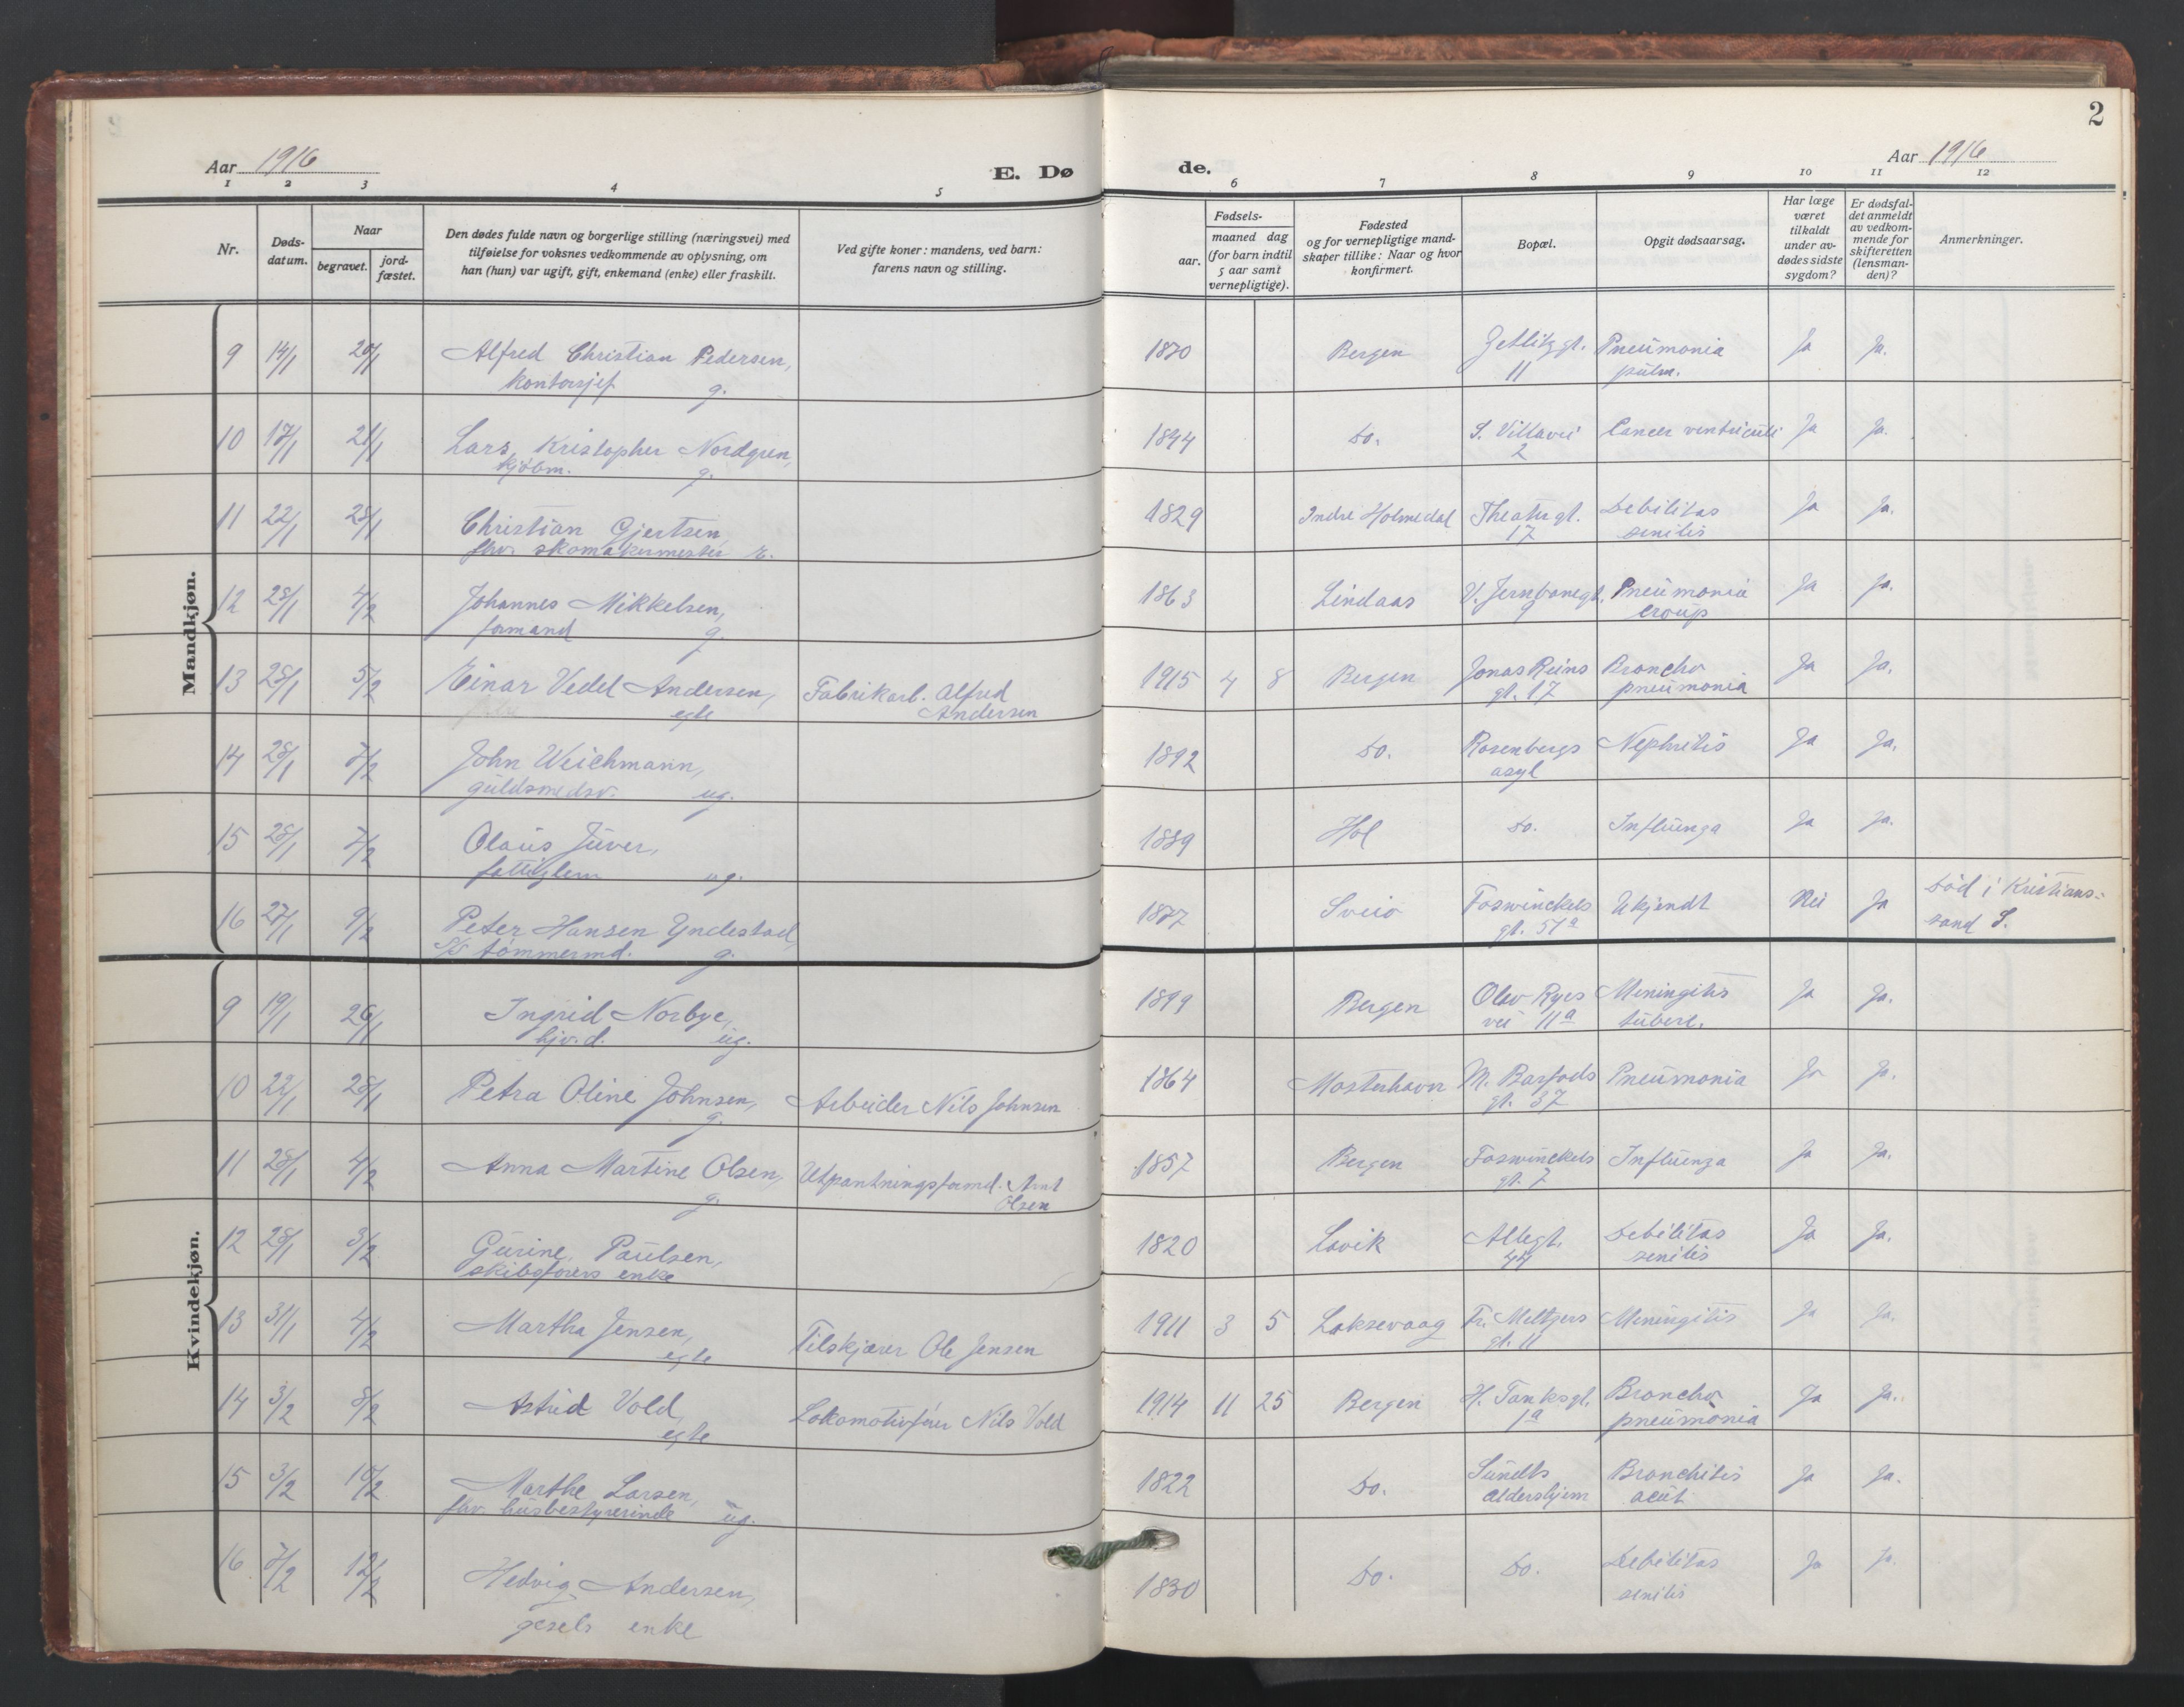 2
Aar 1916
E. Dø
de.
Aar 1916
1 2 3 4 5 6 7 8 9 10 11 12
Nr.
Døds-
datum.
Naar
begravet.
jord-
fæstet.
Den dødes fulde navn og borgerlige stilling (næringsvei) med
tilføielse for voksnes vedkommende av oplysning, om
han (hun) var ugift, gift, enkemand (enke) eller fraskilt.
Ved gifte koner: mandens, ved barn:
farens navn og stilling.
Fødsels-
aar.
maaned dag
(for barn indtil
5 aar samt
vernepligtige).
Fødested
og for vernepligtige mand-
skaper tillike: Naar og hvor
konfirmert.
Bopæl.
Opgit dødsaarsag.
Har læge
været
tilkaldt
under av-
dødes sidste
sygdom?
Er dødsfal-
det anmeldt
av vedkom-
mende for
skifteretten
(lensman-
den)?
Anmerkninger.
Mandkjøn.
9 14/1 20/1 Alfred Christian Pedersen, 1870 Bergen Zetlitzgt. Pneumonia Ja Ja.
kontorsjef g. 11 pulm.
10 17/1 21/1 Lars Kristopher Nordgren, 1844 Do. S. Villavei Cancer ventriculi Ja Ja.
kjøbm. g. 2
11 22/1 28/1 Christian Gjertsen 1829 Indre Holmedal Theatergt. Debilitas Ja Ja.
fhv. skomakermester E. 17 senilis
12 28/1 4/2 Johannes Mikkelsen, 1863 Lindaas V. Jernbanegt. Pneumonia Ja Ja.
formand g. 9 croup
13 28/1 5/2 Einar Vedel Andersen, Fabrikarb. Alfred 1915 4 8 Bergen Jonas Reins Broncho Ja Ja.
egte Andersen gt. 17 pneumonia
14 28/1 7/2 John Weichmann, 1892 Do. Rosenbergs Nephritis Ja Ja.
guldsmedsv. ug. asyl
15 28/1 7/2 Olaus Juver, 1889 Hol Do. Influenza Ja Ja.
fattiglem ug.
16 27/1 9/2 Peter Hansen Yndestad, 1877 Sveio Foswinckels Ukjendt Nei Ja Død i Kristians-
tømmermd. g. gt. 57a sand S.
Kvindekjøn.
9 19/1 26/1 Ingrid Norbye, 1899 Bergen Olav Ryes Meningitis Ja Ja.
hjv. d. ug. vei 11a tuberc.
10 22/1 28/1 Petra Oline Johnsen, Arbeider Nils Johnsen 1864 Mosterhavn M. Barfods Pneumonia Ja Ja.
g. gt. 37
11 28/1 4/2 Anna Martine Olsen, Utpantningsformd. Arnt 1857 Bergen Foswinckels Influenza Ja Ja.
g. Olsen gt. 7
12 28/1 3/2 Gurine Paulsen, 1820 Lavik Allegt. Debilitas Ja Ja.
skibsførers enke 44 senilis
13 31/1 4/2 Martha Jensen, Tilskjærer Ole Jensen 1911 3 5 Laksevaag Fr. Meltzers Meningitis Ja Ja.
egte gt. 11
14 3/2 8/2 Astrid Vold, Lokomotivfører Nils Vold 1914 11 25 Bergen H. Tanksgt. Broncho Ja Ja.
egte 1a pneumonia
15 3/2 10/2 Marthe Larsen, 1822 Do. Sundts Bronchitis Ja Ja.
fhv. husbestyrerinde ug. aldershjem acut
16 7/2 12/2 Hedvig Andersen, 1830 Do. Do. Debilitas Ja Ja.
gesels enke senilis